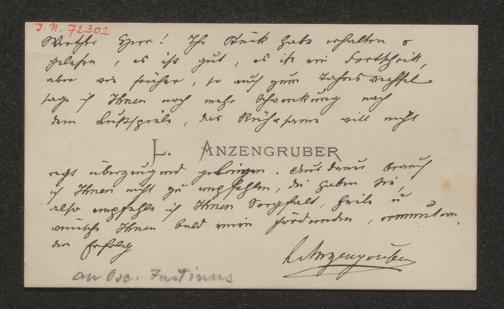 J. N. 72302
Werther Herr! Ihr Stück habe erhalten &
gelesen, es ist gut, es ist ein Fortschritt,
aber wie früher, so auch zum Jahreswechsel
sage ich Ihnen noch mehr Schwenkung nach
dem Lustspiele, das Rührsame will nicht
L. ANZENGRUBER
recht überzeugend gelingen. Ausdauer brauch
ich Ihnen nicht zu empfehlen, die haben Sie,
also empfehle ich Ihnen Sorgfalt, Feile u
wünsche Ihnen bald einen fördernden, ermunternden
den Erfolg
LAnzengruber
an Osc. Justinus